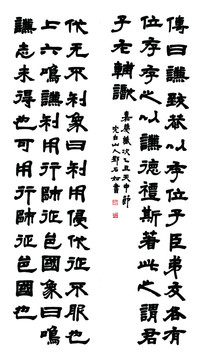 傳曰謙致恭以存位子臣弟友各有
位存存之以謙德禮斯著此之謂君
子右輔謙
嘉慶歲次乙丑天中節
完白山人鄧石如書
伐无不利象曰利用侵伐征不服也
上六鳴謙利用行師征邑國象曰鳴
謙志未得也可用行師征邑國也